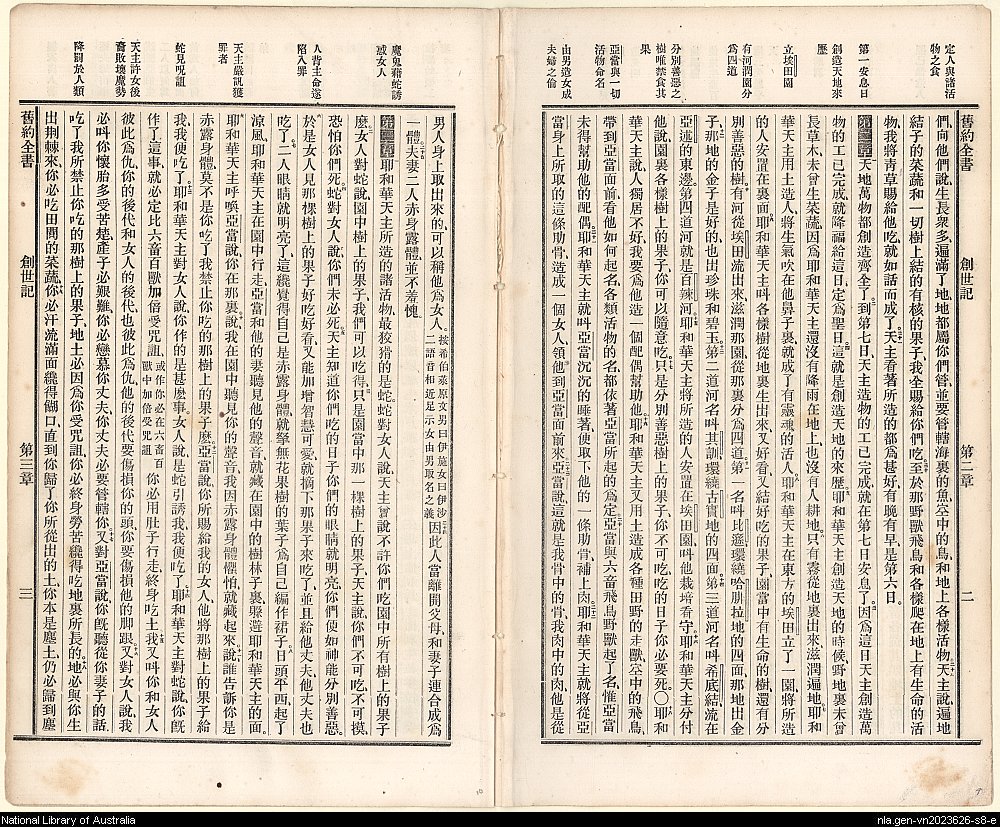 定人與諸活
物之食
第一安息日
創造天地來
歷
立埃田園
有河潤園分
爲四道
分別善惡之
樹唯禁食其
果
亞當與一切
活物命名
由男造女成
夫婦之倫
舊約全書 創世記 第二章 二
們、向他們說、生長衆多、遍滿了地、地都屬你們管、並要管轄海裏的魚、空中的鳥、和地上各樣活物、天主說、遍地
結子的菜蔬、和一切樹上結的有核的果子、我全賜給你們吃、至於那野獸飛鳥、和各樣爬在地上有生命的活
物、我將青草賜給他吃、就如話而成了、天主看著所造的都爲甚好、有晚有早、是第六日。
第二章 天地萬物都創造齊全了、到第七日、天主造物的工已完成、就在第七日安息了、因爲這日天主創造萬
物的工已完成、就降福給這日、定爲聖日、這就是創造天地的來歷、耶和華天主創造天地的時候、野地裏未曾
長草木、未曾生菜蔬、因爲耶和華天主還沒有降雨在地上、也沒有人耕地、只有霧從地裏出來、滋潤遍地、耶和
華天主用土造人、將生氣吹在他鼻子裏、就成了有靈魂的活人、耶和華天主在東方的埃田立了一園、將所造
的人安置在裏面、耶和華天主叫各樣樹從地裏生出來、又好看、又結好吃的果子、園當中有生命的樹、還有分
別善惡的樹、有河從埃田流出來、滋潤那園、從那裏分爲四道、第一名叫比遜、環繞哈腓拉地的四面、那地出金
子、那地的金子是好的、也出珍珠和碧玉、第二道河名叫其訓、環繞古實地的四面、第三道河名叫希底結、流在
亞述的東邊、第四道河就是百辣河、耶和華天主將所造的人安置在埃田園、叫他栽培看守、耶和華天主分付
他說、園裏各樣樹上的果子、你可以隨意吃、只是分別善惡樹上的果子、你不可吃、吃的日子、你必要死。〇耶和
華天主說、人獨居不好、我要爲他造一個配偶幫助他、耶和華天主又用土造成各種田野的走獸、空中的飛鳥、
帶到亞當面前、看他如何起名、各類活物的名、都依著亞當所起的爲定、亞當與六畜飛鳥野獸起了名、惟亞當
未得幫助他的配偶、耶和華天主就叫亞當沉沉的睡著、便取下他的一條肋骨、補上肉、耶和華天主就將從亞
當身上所取的這條肋骨、造成一個女人、領他到亞當面前來、亞當說、這就是我骨中的骨、我肉中的肉、他是從
魔鬼藉蛇誘
惑女人
人背主命遂
陷入罪
天主嚴訊獲
罪者
蛇見咒詛
天主許女後
裔敗壞魔勢
降罰於人類
男人身上取出來的、可以稱他爲女人、按希伯萊原文男曰伊施女曰伊沙二語音相近足示女由男取名之義 因此人當離開父母、和妻子連合、成爲
一體、夫妻二人赤身露體、並不羞愧。
第三章 耶和華天主所造的諸活物、最狡猾的是蛇、蛇對女人說、天主曾說不許你們吃園中所有樹上的果子
麽、女人對蛇說、園中樹上的果子、我們可以吃得、只是園當中那一棵樹上的果子、天主說、你們不可吃、不可摸、
恐怕你們死、蛇對女人說、你們未必死、天主知道你們吃的日子、你們的眼睛就明亮、你們便如神能分別善惡。
於是女人見那棵樹上的果子好吃好看、又能加增智慧可愛、就摘下那果子來吃了、並且給他丈夫、他丈夫也
吃了、二人眼睛就明亮了、這纔覺得自己是赤露身體、就拏無花果樹的葉子、爲自己編作裙子、日頭平西、起了
涼風、耶和華天主在園中行走、亞當和他的妻聽見他的聲音、就藏在園中的樹林子裏、躱避耶和華天主的面。
耶和華天主呼喚亞當說、你在那裏、說我在園中聽見你的聲音、我因赤露身體懼怕、就藏起來、說誰告訴你是
赤露身體、莫不是你吃了我禁止你吃的那樹上的果子麽、亞當說、你所賜給我的女人、他將那樹上的果子給
我、我便吃了、耶和華天主對女人說、你作的是甚麽事、女人說、是蛇引誘我、我便吃了、耶和華天主對蛇說、你旣
作了這事、就必定比六畜百獸加倍受咒詛、或作你必在六畜百獸中加倍受咒詛 你必用肚子行走、終身吃土、我又叫你和女人
彼此爲仇、你的後代和女人的後代、也彼此爲仇、他的後代要傷損你的頭、你要傷損他的脚跟、又對女人說、我
必叫你懷胎多受苦楚、產子必艱難、你必戀慕你丈夫、你丈夫必要管轄你。又對亞當說、你旣聽從你妻子的話、
吃了我所禁止你吃的那樹上的果子、地土必因爲你受咒詛、你必終身勞苦、纔得吃地裏所長的、地必與你生
出荆棘來、你必吃田間的菜蔬、你必汗流滿面、纔得餬口、直到你歸了你所從出的土、你本是塵土、仍必歸到塵
舊約全書 創世記 第三章 三
National Library of Australia
nla.gen-vn2023626-s8-e